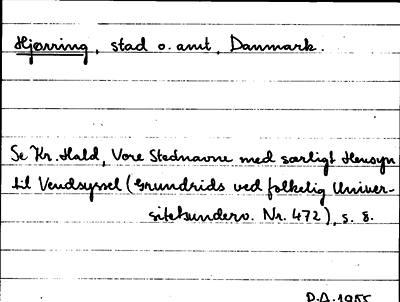 Hjørring, stad o. amt, Danmark.
Se Kr. Hald, Vore Stednavne med særligt Hensyn
til Vendsyssel (Grundrids ved folkelig Univer-
sitetsunderv. Nr. 472), s. 8.
D.A. 1955